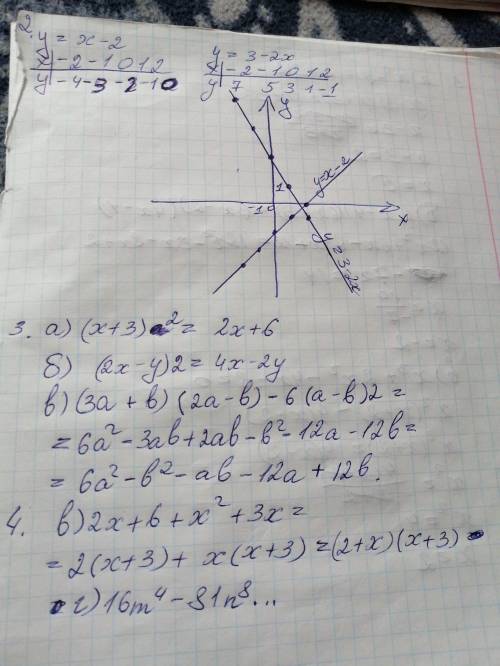 2. y = x - 2
y = 3 - 2x
x | -2 -1 0 1 2
y | -4 -3 -2 -1 0
x | -2 -1 0 1 2
y | 7 5 3 1 -1
y
1
y=x-2
-1 0
x
y = 3-2x
3. а) (x+3) 2 = 2x+6
б) (2x-y)2 = 4x-2y
в) (3a + в) (2a-в) - 6 (a-в)2 =
= 6a² - 3aв + 2aв - в² - 12a - 12в =
= 6a² - в² - aв - 12a + 12в.
4. в) 2x + 6 + x² + 3x =
= 2(x+3) + x(x+3) = (2+x)(x+3)
г) 16m⁴ - 81n⁸...